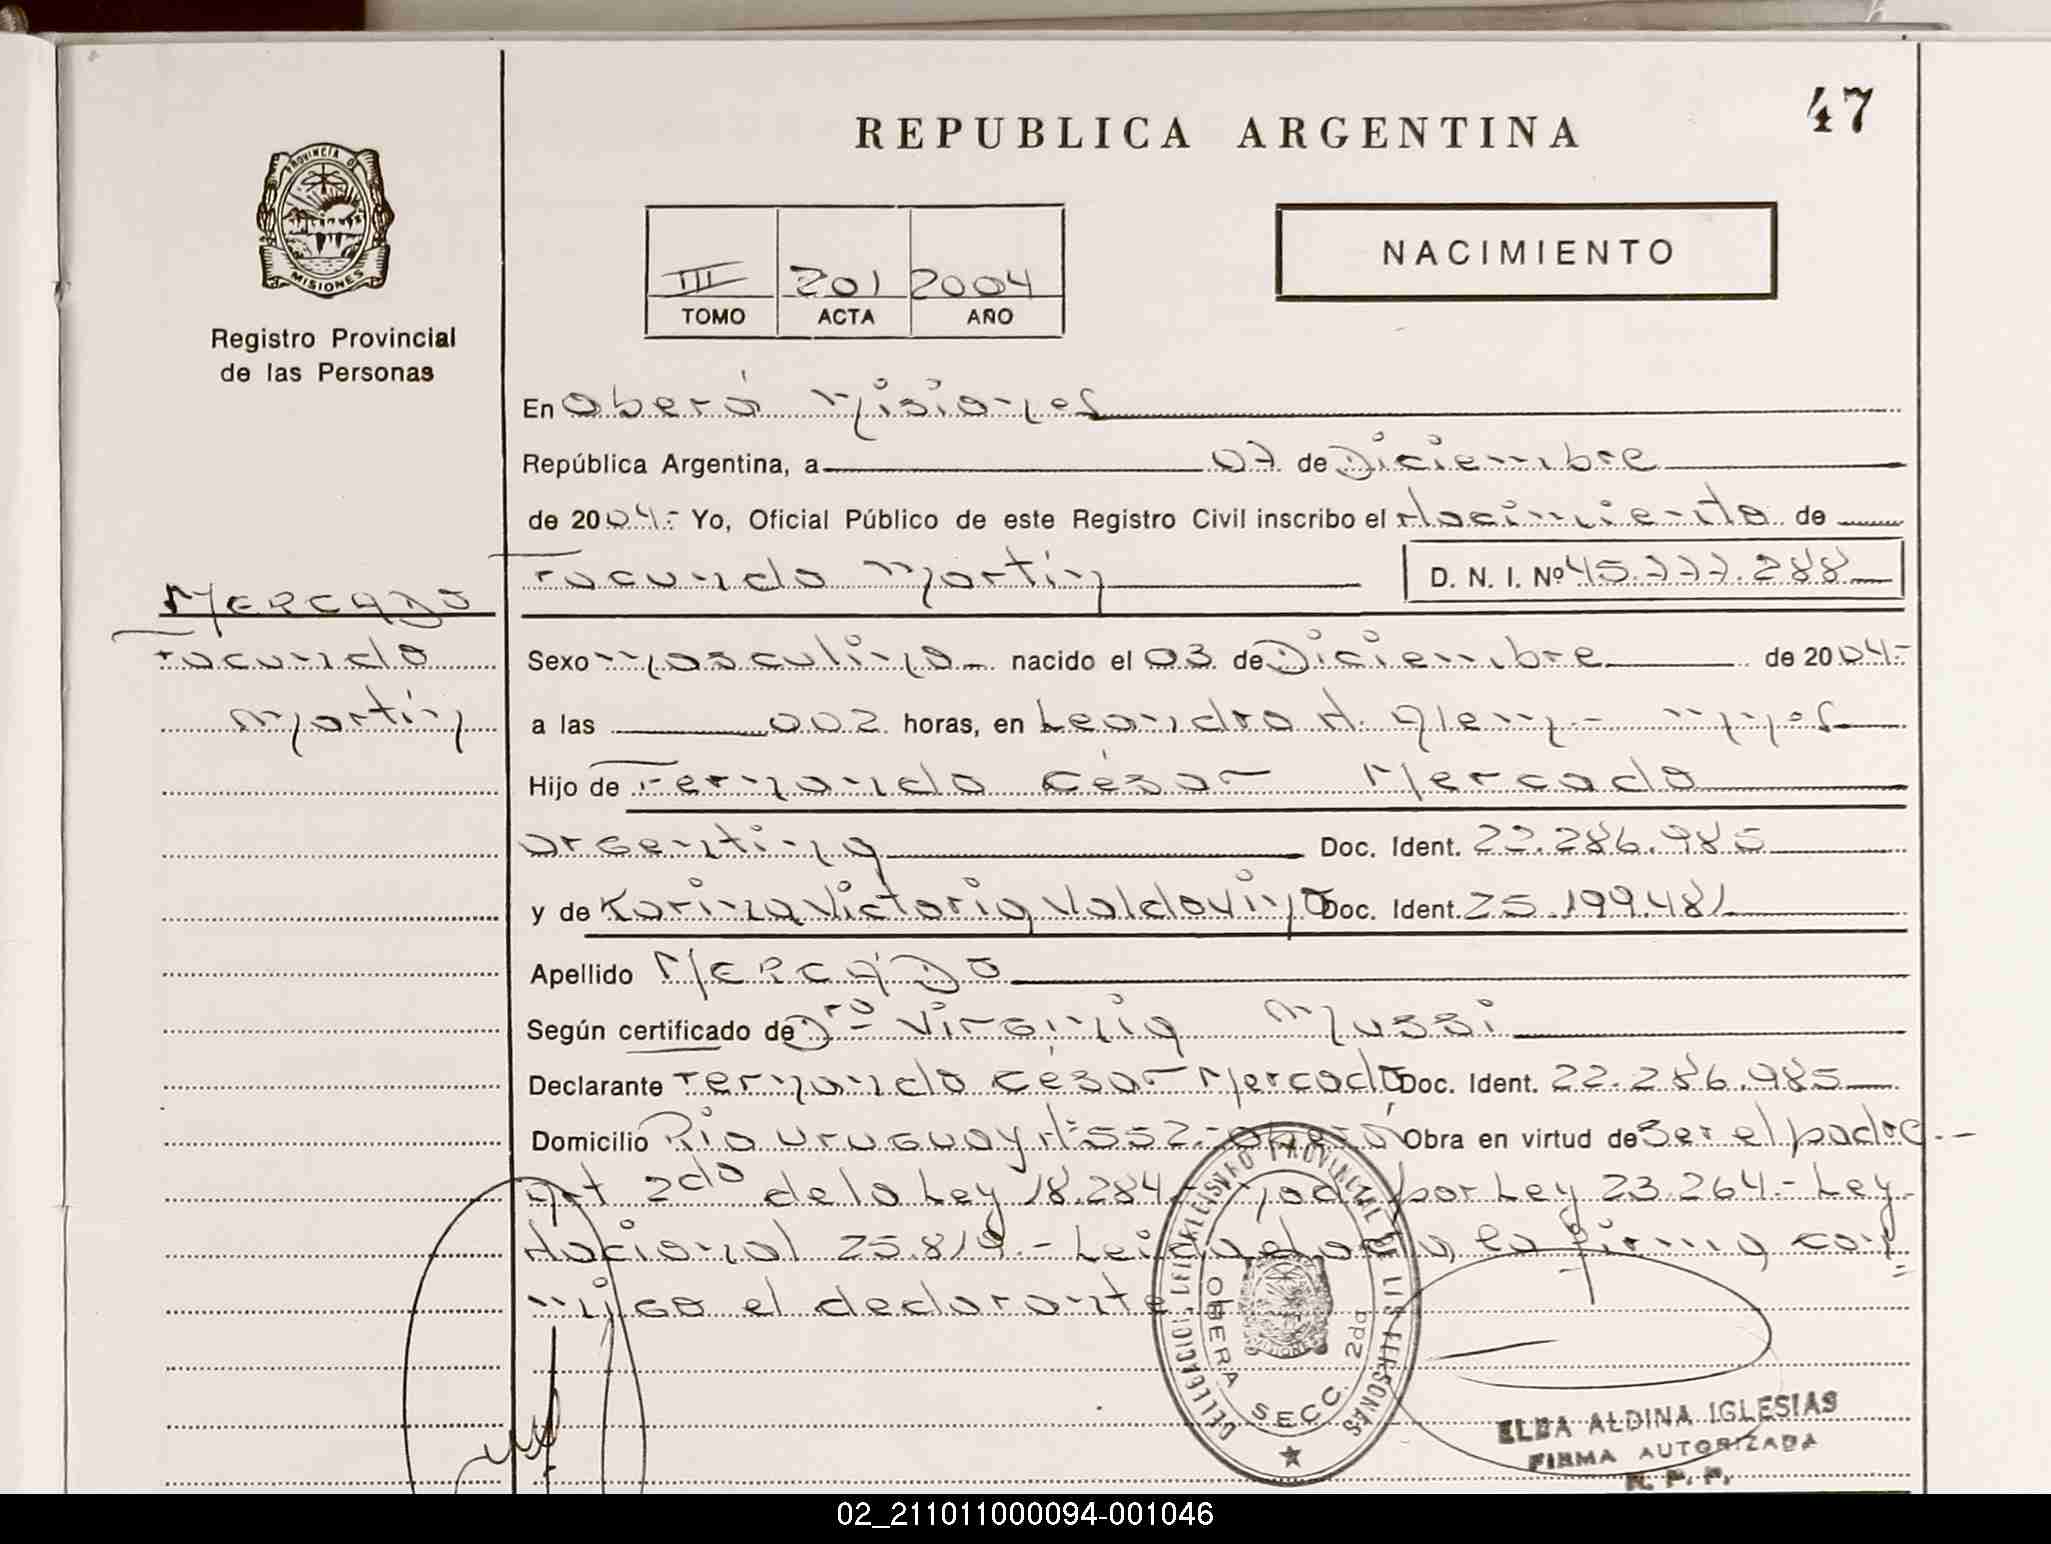 47
REPUBLICA ARGENTINA
PROVINCIA D
MISIONES
Registro Provincial
de las Personas
III 201 2004
TOMO ACTA AÑO
NACIMIENTO
En Oberá Misiones
República Argentina, a 07 de Diciembre
de 2004.- Yo, Oficial Público de este Registro Civil inscribo el Nacimiento de
Facundo Martin D. N. I. Nº 45.777.288
MERCADO
Facundo
Martín
Sexo masculino nacido el 03 de Diciembre de 2004.-
a las 002 horas, en Leandro N. Alem - mnes
Hijo de Fernando César Mercado
argentina Doc. Ident. 22.286.985
y de Karina Victoria Valdovino Doc. Ident. 25.199.481
Apellido MERCADO
Según certificado de Dra Virginia Mussi
Declarante Fernando César Mercado Doc. Ident. 22.286.985
Domicilio Rio Uruguay Nº 552.- Oberá Obra en virtud de ser el padre.-
Art 2do de la Ley 18.284 por Ley 23.264.- Ley
Nacional 25.819.- Leida el acta, la firma con
migo el declarante
REGISTRO PROVINCIAL DE LAS PERSONAS
OBERA SECC. 2da
MISIONES
ELBA ALDINA IGLESIAS
FIRMA AUTORIZADA
R. P. P.
02_211011000094-001046